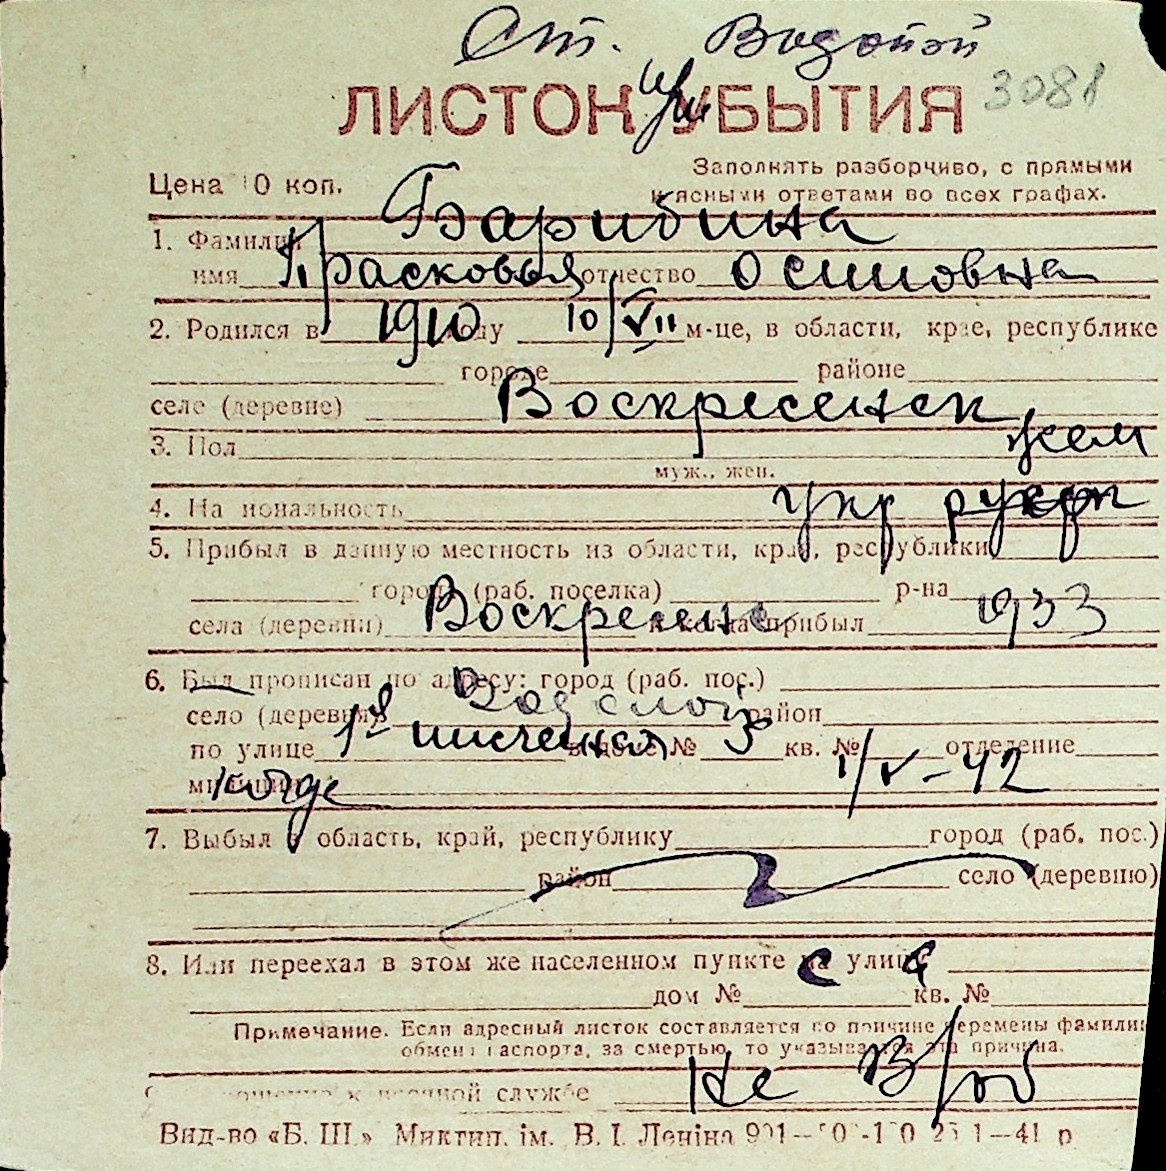 Ст. Водопой
ЛИСТОК УБЫТИЯ 3081
при
Цена 10 коп.
Заполнять разборчиво, с прямыми
и ясными ответами во всех графах.
1. Фамилия Барибина
имя Прасковья отчество Осиповна
2. Родился в 1910 году 10/VII м-це, в области, крае, республике
городе районе
селе (деревне) Воскресенск
3. Пол жен
муж., жен.
4. Национальность укр
5. Прибыл в данную местность из области, края, республики
города (раб. поселка) р-на
села (деревни) Воскресенс и когда прибыл 1933
6. Был прописан по адресу: город (раб. пос.)
село (деревня) Водопой район
по улице 1я в доме № 5 кв. № отделение
милиции когда 1/V-42
7. Выбыл в область, край, республику город (раб. пос.)
район село (деревню)
8. Или переехал в этом же населенном пункте на улицу
дом № кв. №
Примечание. Если адресный листок составляется по причине перемены фамилии
обмена паспорта, за смертью, то указывается эта причина.
отношение к военной службе не в/об
Вид-во «Б. Ш.» Миктип. ім. В. І. Леніна